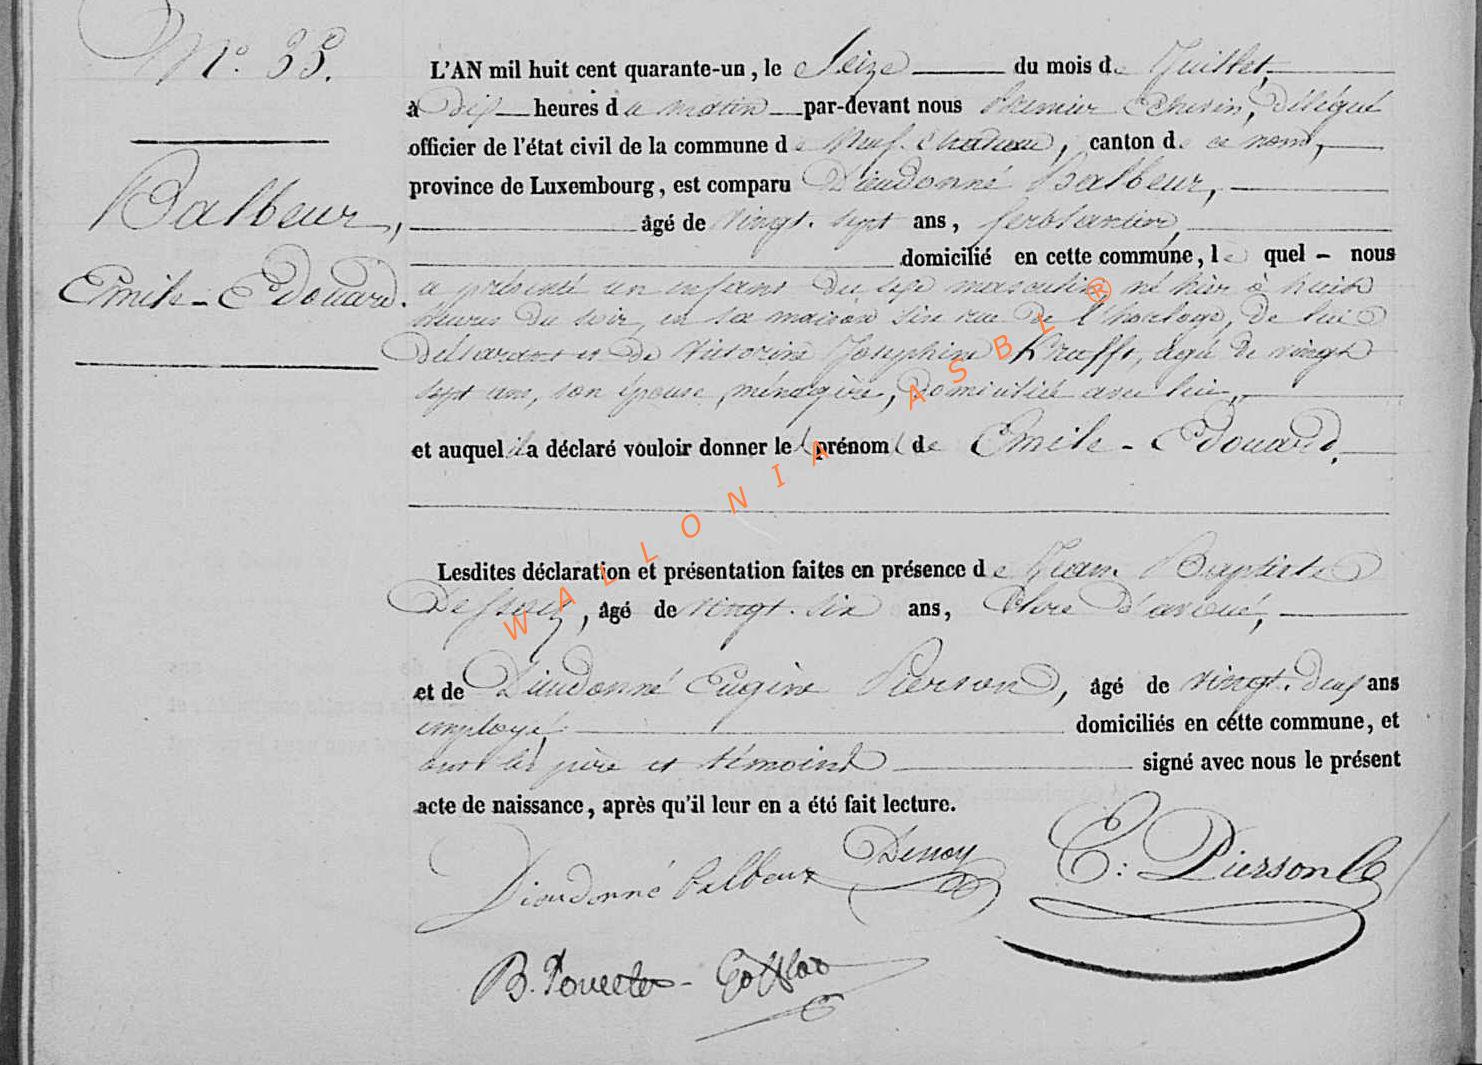 N.° 35.
Balbeur,
Emile-Edouard.
L'AN mil huit cent quarante-un, le Seize du mois de Juillet,
à dix heures du matin par-devant nous Premier Echevin, délégué
officier de l'état civil de la commune de Neuf-Château, canton de ce nom,
province de Luxembourg, est comparu Dieudonné Balbeur,
âgé de vingt-sept ans, ferblantier,
domicilié en cette commune, le quel - nous
a présenté un enfant du sexe masculin, né hier à huit
heures du soir, en sa maison sise rue de l'horloge, de lui
déclarant et de Victorine Josephine Krafft, agée de vingt
sept ans, son épouse, ménagère, domiciliée avec lui,
et auquel il a déclaré vouloir donner le prénom de Emile-Edouard.
Lesdites déclaration et présentation faites en présence de Jean Baptiste
Dessoy, âgé de vingt-six ans, Clerc d'avoué,
et de Dieudonné Eugène Pierson, âgé de vingt-deux ans
employé, domiciliés en cette commune, et
ont les père et témoins signé avec nous le présent
acte de naissance, après qu'il leur en a été fait lecture.
Dieudonné Balbeur Dessoy E: Pierson
B.
WALLONIA ASBL ®